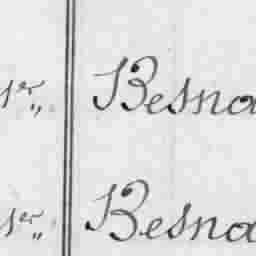 1er „ Besna
1er „ Besna